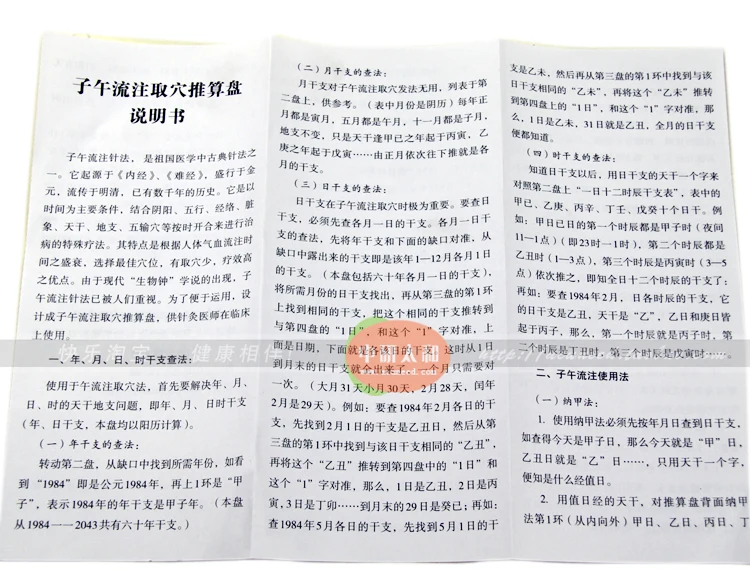 子午流注取穴推算盘
说明书
子午流注针法，是祖国医学中古典针法之
一。它起源于《内经》、《难经》，盛行于金
元，流传于明清，已有数千年的历史。它是以
时间为主要条件，结合阴阳、五行、经络、脏
象、天干、地支、五输六等按时开合来进行治
病的特殊疗法。其特点是根据人体气血流注时
间之盛衰，选择最佳穴位，有取穴少，疗效高
之优点。由于现代“生物钟”学说的出现，子
午流注针法已被人们重视。为了便于运用，设
计成子午流注取穴推算盘，供针灸医师在临床
上使用。
一、年、月、日、时干支查法：
使用子午流注取穴法，首先要解决年、月、
日、时的天干地支问题，即年、月、日时干支
（年、日干支，本盘均以阳历计算）。
（一）年干支的查法：
转动第二盘，从缺口中找到所需年份，如看
到“1984”即是公元1984年，再上1环是“甲
子”，表示1984年的年干支是甲子年。（本盘
从1984一一2043共有六十年干支。）
（二）月干支的查法：
月干支对子午流注取穴发法无用，列表于第
二盘上，供参考。（表中月份是阴历）每年正
月都是寅月，五月都是午月，十一月都是子月，
地支不变，只是天干逢甲己之年起于丙寅，乙
庚之年起于戊寅……由正月依次往下推就是各
月的干支。
（三）日干支的查法：
日干支在子午流注取穴时极为重要。要查日
干支，必须先查各月一日的干支。各月一日干
支的查法，先将年干支和下面的缺口对准，从
缺口中露出来的干支即是该年1—12月各月1日
的干支。（本盘包括六十年各月一日的干支），
将所需月份的日干支找出，再从第三盘的第1环
上找到相同的干支，把这个相同的干支推转到
与第四盘的“1日”，和这个“1”字对准，上
面是日期，下面就是各该日的干支，这时从1日
到月末的日干支就全出来了，一个月只需要对
一次。（大月31天小月30天，2月28天，闰年
2月是29天）。例如：要查1984年2月各日的干
支，先找到2月1日的干支是乙丑日，然后从第
三盘的第1环中找到与该日干支相同的“乙丑”，
再将这个“乙丑”推转到第四盘中的“1日”和
这个“1”字对准，那么，1日是乙丑，2日是丙
寅，3日是丁卯……到月末的29日是癸巳；再如：
查1984年5月各日的干支，先找到5月1日的干
支是乙未，然后再从第三盘的第1环中找到与该
日相同的“乙未”，再将这个“乙未”推转
到第四盘上的“1日”，和这个“1”字对准，那
么，1日是乙未，31日就是乙丑，全月的日干支
便都知道。
（四）时干支的查法：
知道日干支以后，用日干支的天干一个字来
对照第二盘上“一日十二时辰干支表”，表中的
甲己、乙庚、丙辛、丁壬、戊癸十个日干。例
如：甲日已日的第一个时辰都是甲子时（夜间
11—1点）（即23时一1时），第二个时辰都是
乙丑时（1—3点），第三个时辰是丙寅时（3—5
点）依次推之，即知全日十二个时辰的干支了；
再如：要查1984年2月，日各时辰的干支，它
的日干支是乙丑，天干是“乙”，乙日和庚日皆
起于丙子，那么，第一个时辰就是丙子时，第
二个时辰是丁丑时，第三个时辰是戊寅时……
二、子午流注使用法
（一）纳甲法：
1. 使用纳甲法必须先按年月日查到日干支，
如查得今天是甲子日，那么今天就是“甲”日，
乙丑日就是“乙”日……，只用天干一个字，
便知是什么经值日。
2. 用值日经的天干，对推算盘背面纳甲
法第1环（从内向外）甲日、乙日、丙日、丁
中研太和